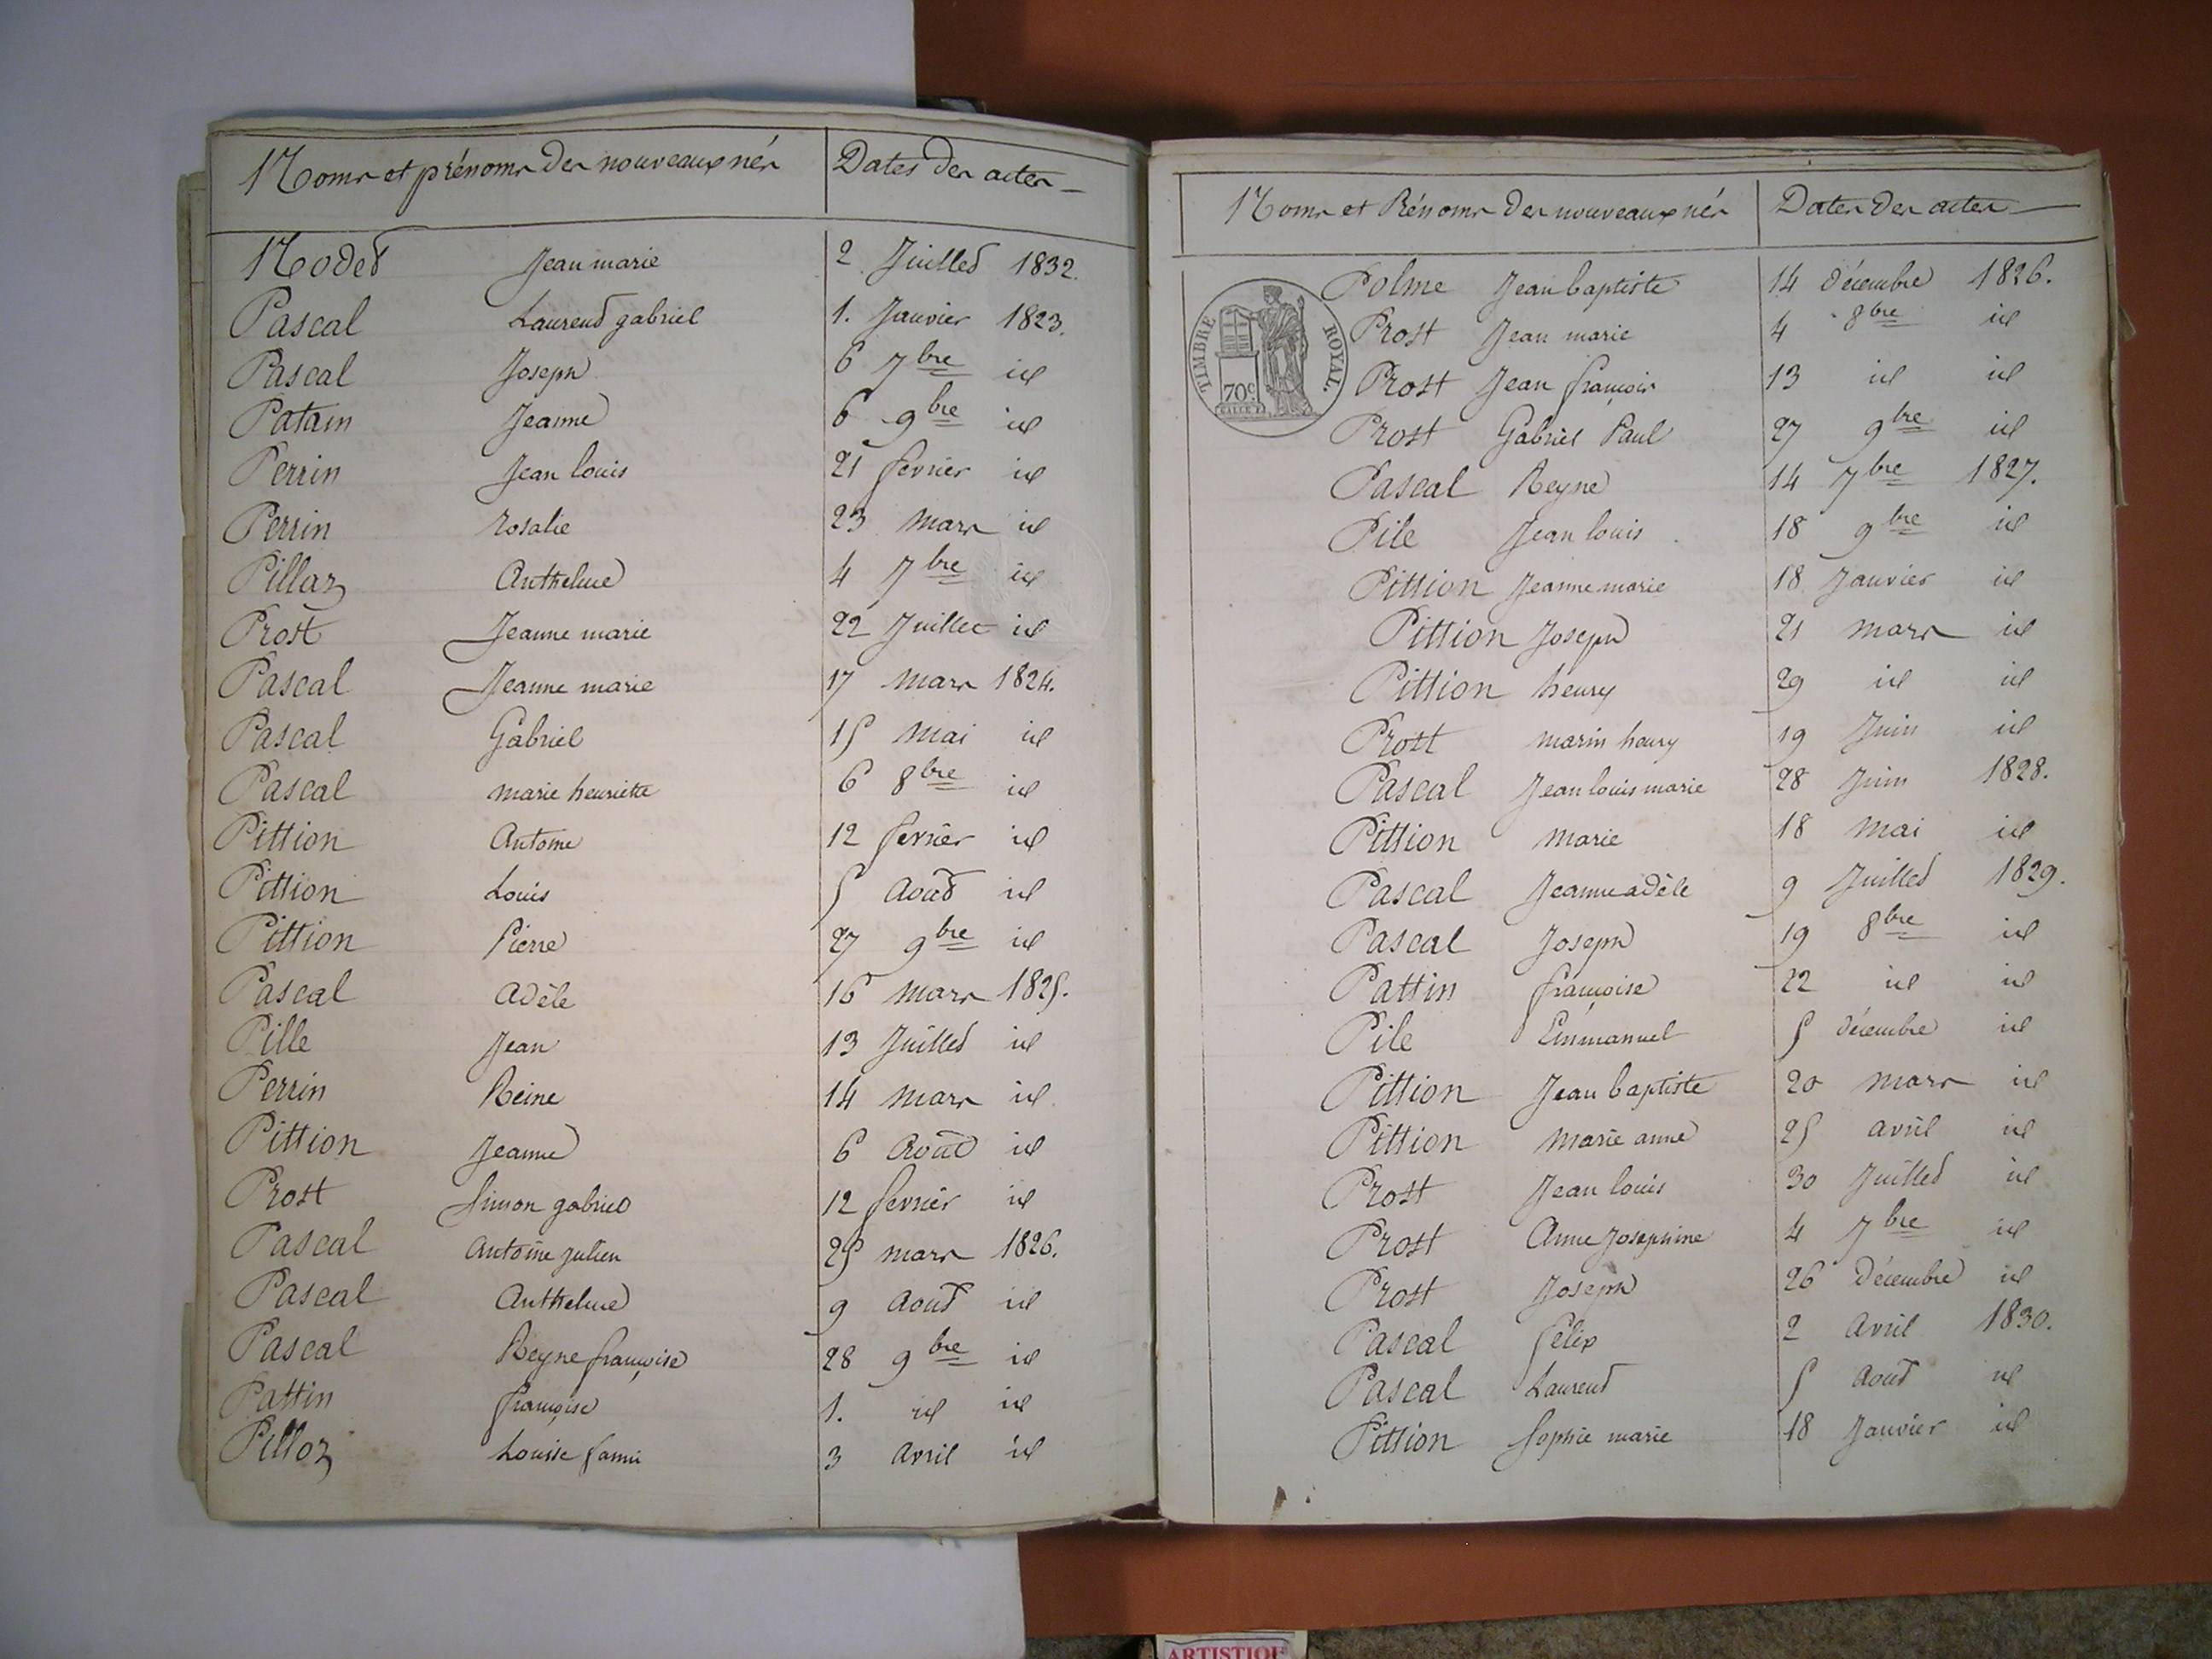 Noms et prénoms des nouveaux nés Dates des actes
Nodet Jean marie 2 Juillet 1832.
Pascal Laurent gabriel 1. Janvier 1823.
Pascal Joseph 6 7bre id
Patain Jeanne 6 9bre id
Perrin Jean louis 21 fevrier id
Perrin rosalie 23 mars id
Pillaz Anthelme 4 7bre id
Prost Jeanne marie 22 Juillet id
Pascal Jeanne marie 17 mars 1824.
Pascal Gabriel 15 mai id
Pascal marie henriette 6 8bre id
Pittion Antoine 12 fevrier id
Pittion Louis 5 Aout id
Pittion Pierre 27 9bre id
Pascal Adèle 16 mars 1825.
Pille Jean 13 Juillet id
Perrin Reine 14 mars id
Pittion Jeanne 6 Août id
Prost Simon gabriel 12 fevrier id
Pascal Antoine julien 25 mars 1826.
Pascal Anthelme 9 Aout id
Pascal Reyne françoise 28 9bre id
Pattin françoise 1. id id
Pilloz Louise fanni 3 Avril id
Noms et Prénoms des nouveaux nés Dates des actes
TIMBRE ROYAL.
70c
Polme Jean baptiste 14 décembre 1826.
Prost Jean marie 4 8bre id
Prost Jean françois 13 id id
Prost Gabriel Paul 27 9bre id
Pascal Reyne 14 7bre 1827.
Pile Jean louis 18 9bre id
Pittion Jeanne marie 18 Janvier id
Pittion Joseph 21 mars id
Pittion henry 29 id id
Prost marin henry 19 Juin id
Pascal Jean louis marie 28 Juin 1828.
Pittion marie 18 mai id
Pascal Jeanne adèle 9 Juillet 1829.
Pascal Joseph 19 8bre id
Pattin françoise 22 id id
Pile Emmanuel 5 décembre id
Pittion Jean baptiste 20 mars id
Pittion marie anne 25 avril id
Prost Jean louis 30 Juillet id
Prost Anne Josephine 4 7bre id
Prost Joseph 26 décembre id
Pascal felix 2 Avril 1830.
Pascal Laurent 5 Aout id
Pittion Sophie marie 18 Janvier id
ARTISTIQUE